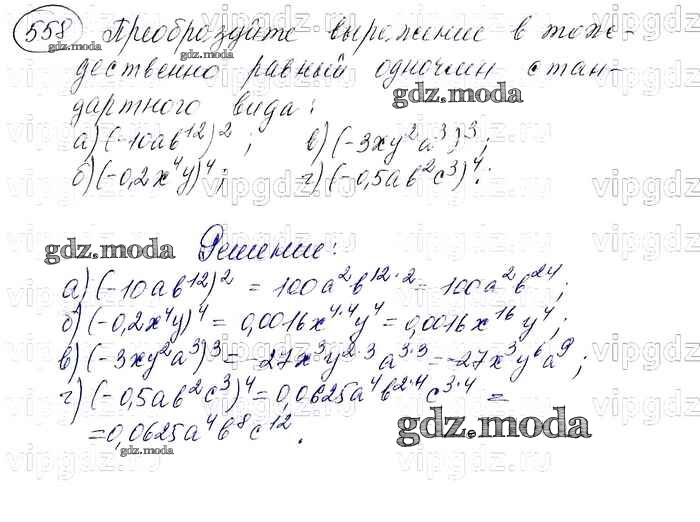 558 Преобразуйте выражение в тож-
дественно равный одночлен стан-
дартного вида:
а) (-10ab¹²)²; в) (-3xy²a³)³;
б) (-0,2x⁴y)⁴; г) (-0,5ab²c³)⁴.
Решение:
а) (-10ab¹²)² = 100a²b¹²·² = 100a²b²⁴;
б) (-0,2x⁴y)⁴ = 0,0016x⁴·⁴y⁴ = 0,0016x¹⁶y⁴;
в) (-3xy²a³)³ = -27x³y²·³a³·³ = -27x³y⁶a⁹;
г) (-0,5ab²c³)⁴ = 0,0625a⁴b²·⁴c³·⁴ =
= 0,0625a⁴b⁸c¹².
gdz.moda
gdz.moda
gdz.moda
gdz.moda
gdz.moda
gdz.moda
vipgdz.ru